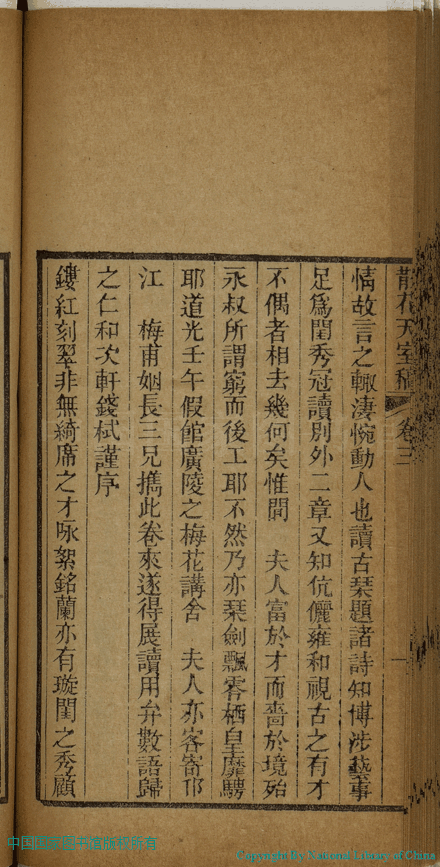 散花天室稿 卷三 一
情故言之輙淒惋動人也讀古琹題諸詩知博涉藝事
足爲閨秀冠讀別外二章又知伉儷雍和視古之有才
不偶者相去幾何矣惟聞 夫人富於才而嗇於境殆
永叔所謂窮而後工耶不然乃亦琹劍飄零栖皇靡騁
耶道光壬午假館廣陵之梅花講舍 夫人亦客寄邗
江 梅甫姻長三兄攜此卷來遂得展讀用弁數語歸
之仁和次軒錢栻謹序
鏤紅刻翠非無綺席之才咏絮銘蘭亦有璇閨之秀顧
中国国家图书馆版权所有
Copyright By National Library of China